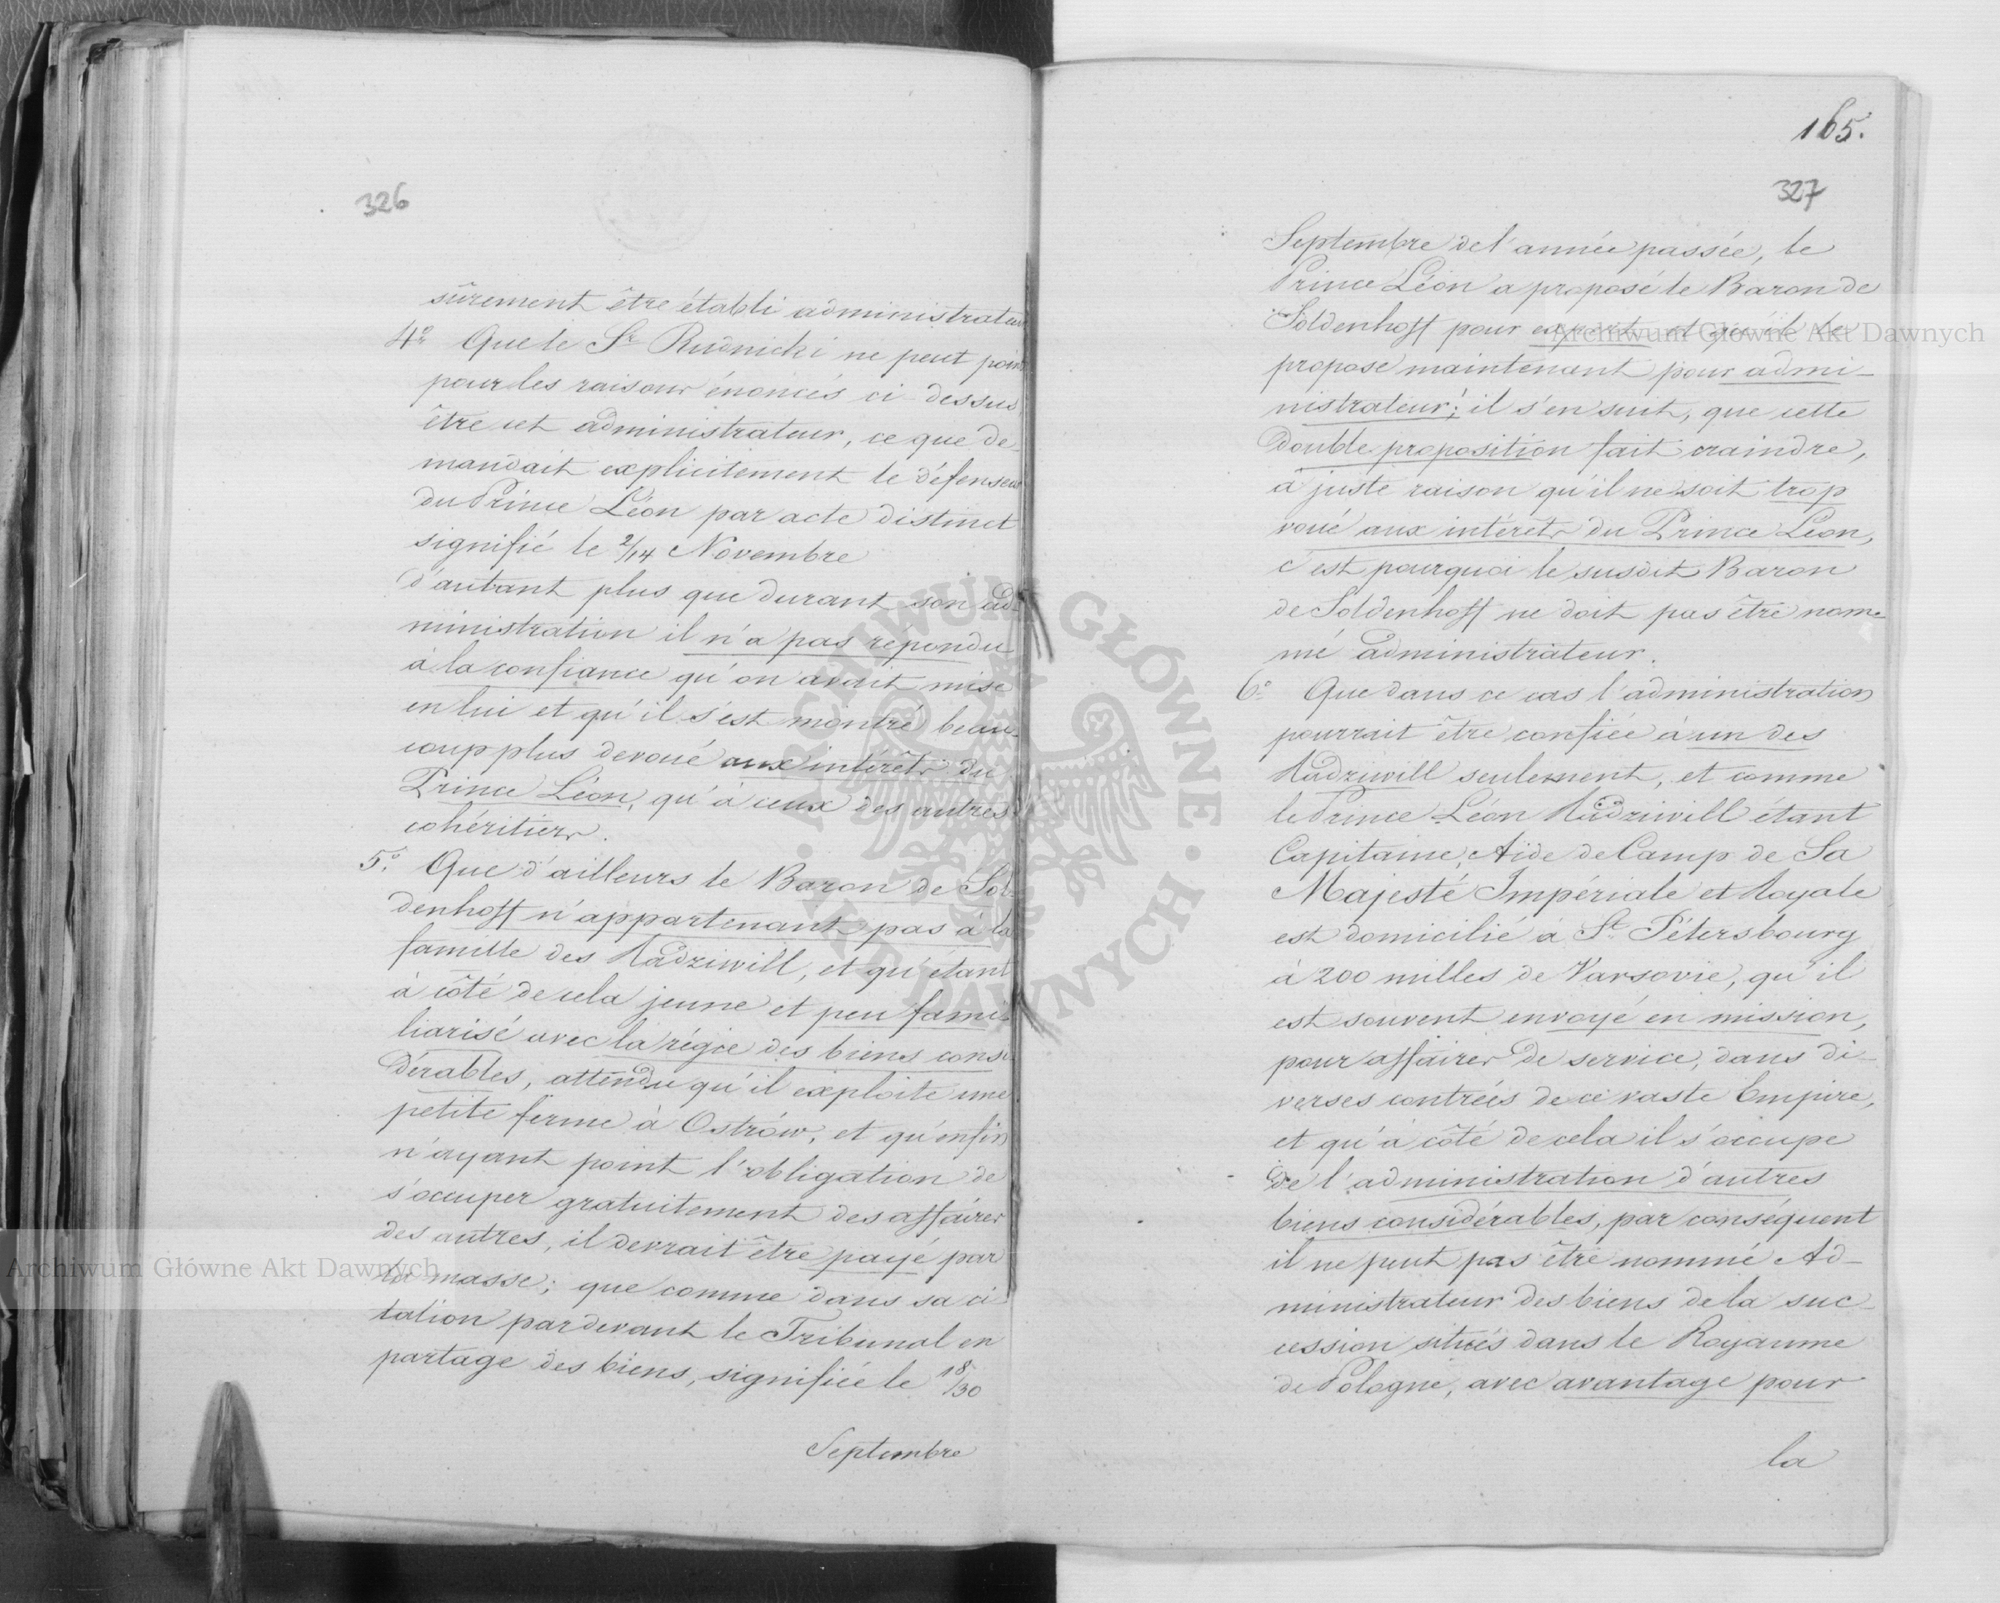 326
sûrement être établi administrateur
4º Que le Sr Rudnicki ne peut point
pour les raisons énoncés ci-dessus
être cet administrateur, ce que de-
mandait explicitement le défenseur
du Prince Léon par acte distinct
signifié le 2/14 Novembre
d'autant plus que durant son ad-
ministration il n'a pas repondu
à la confiance qu'on avait mise
en lui et qu'il s'est montré beau-
coup plus devoué aux intérêts du
Prince Léon, qu'à ceux des autres
cohéritiers.
5º. Que d'ailleurs le Baron de Sol-
denhoff n'appartenant pas à la
famille des Radziwill, et qu'étant
à côté de cela jeune et peu fami-
liarisé avec la régie des biens consi-
dérables, attendu qu'il exploite une
petite ferme à Ostrów, et qu'enfin
n'ayant point l'obligation de
s'occuper gratuitement des affaires
des autres, il devrait être payé par
la masse; que comme dans sa ci-
tation pardevant le Tribunal en
partage des biens, signifiée le 18/30
Septembre
165.
327
Septembre de l'année passée, le
Prince Léon a proposé le Baron de
Soldenhoff pour expert et qu'il le
propose maintenant pour admi-
nistrateur; il s'en suit, que cette
double proposition fait craindre,
à juste raison qu'il ne soit trop
voué aux intérets du Prince Léon,
c'est pourquoi le susdit Baron
de Soldenhoff ne doit pas être nom-
mé administrateur.
6º Que dans ce cas l'administration
pourrait être confiée à un des
Radziwill seulement, et comme
le Prince Léon Radziwill étant
Capitaine, Aide de Camp de Sa
Majesté Impériale et Royale
est domicilié à St. Pétersbourg
à 200 milles de Varsovie, qu'il
est souvent envoyé en mission,
pour affaires de service, dans di-
verses contrées de ce vaste Empire,
et qu'à côté de cela il s'occupe
de l'administration d'autres
biens considérables, par conséquent
il ne peut pas être nommé Ad-
ministrateur des biens de la suc-
cession situés dans le Royaume
de Pologne, avec avantage pour
la
Archiwum Główne Akt Dawnych
Archiwum Główne Akt Dawnych
ARCHIWUM GŁÓWNE · AKT DAWNYCH ·